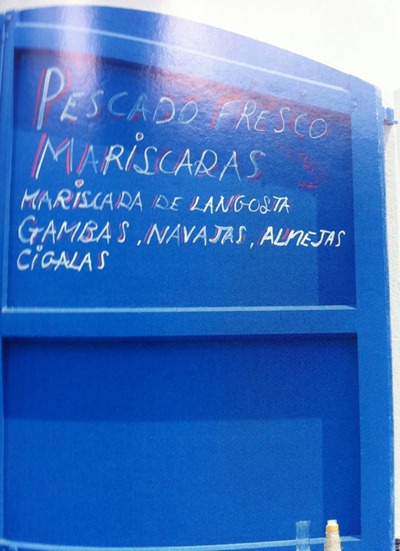 PESCADO FRESCO
MARISCADAS
MARISCADA DE LANGOSTA
GAMBAS, NAVAJAS, ALMEJAS
CIGALAS